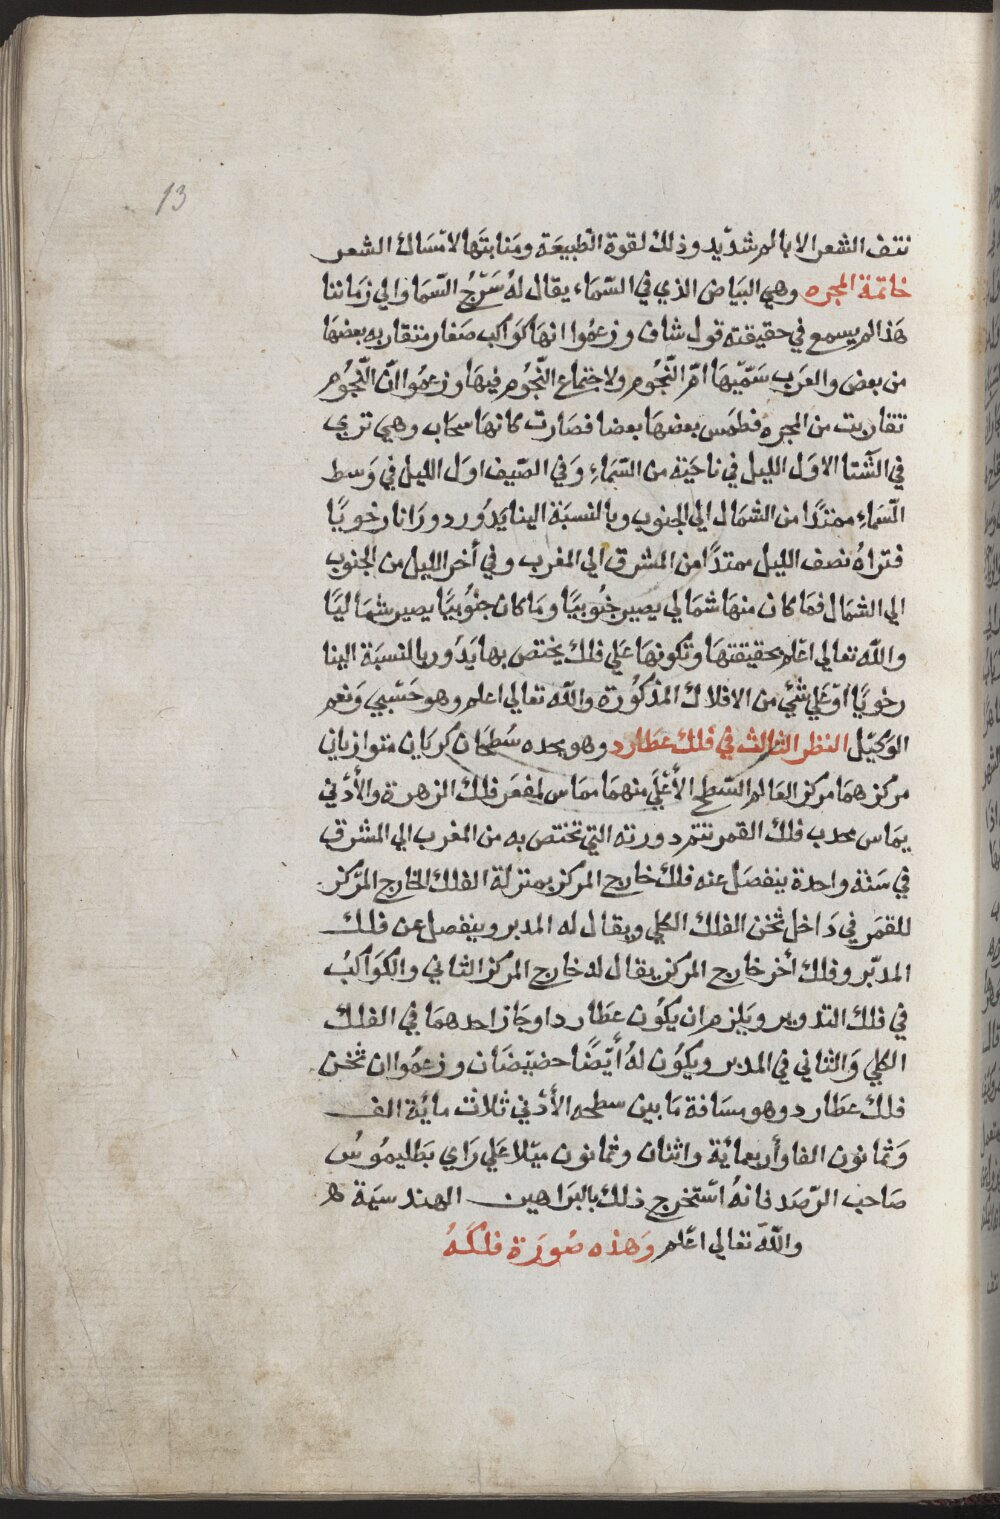 13
نتف الشعر الا بالم شديد وذلك لقوة الطبيعة ومنابتها لامساك الشعر
خاتمة المجره وهي البياض الذي في السماء يقال له سرج السما والي زماننا
هذا لم يسمع في حقيقته قول شاف وزعموا انها كواكب صغار متقاربه بعضها
من بعض والعرب سميها ام النجوم ولاجتماع النجوم فيها وزعموا ان النجوم
تقاربت من المجره فطمس بعضها بعضا فصارت كانها سحاب وهي تري
في الشتا الاول الليل في ناحية من السماء وفي الصيف اول الليل في وسط
السماء ممتدا من الشمال الي الجنوب وبالنسبة الينا يدور دورانا رخويا
فتراه نصف الليل ممتدا من المشرق الي المغرب وفي أخر الليل من الجنوب
الي الشمال فما كان منها شمالي يصير جنوبيا وما كان جنوبيا يصير شماليا
والله تعالي اعلم بحقيقتها وتكونها علي فلك يختص بها يدور بالنسبة الينا
رخويا او علي شئ من الافلاك المذكورة والله تعالي اعلم وهو حسبي ونعم
الوكيل النظر الثالث في فلك عطارد وهو يحده سطحان كريان متوازيان
مركزهما مركز العالم السطح الأعلي منهما مماس لمقعر فلك الزهرة والأدني
يماس محدب فلك القمر تتم دورته التي تختص به من المغرب الي المشرق
في سنة واحدة ينفصل عنه فلك خارج المركز بمنزلة الفلك الخارج المركز
للقمر في داخل ثخن الفلك الكلي ويقال له المدبر وينفصل عن فلك
المدبر وفلك أخر خارج المركز يقال له خارج المركز الثاني والكواكب
في فلك التدوير ويلزم ان يكون عطارد اوجاز احدهما في الفلك
الكلي والثاني في المدبر ويكون له أيضا حضيضان وزعموا ان ثخن
فلك عطارد وهو مسافة ما بين سطحه الأدني ثلاث ماية الف
وثمانون الفا وأربعماية واثنان وثمانون ميلا علي راي بطليموس
صاحب الرصد فانه استخرج ذلك بالبراهين الهندسية ه
والله تعالي اعلم وهذه صورة فلكه